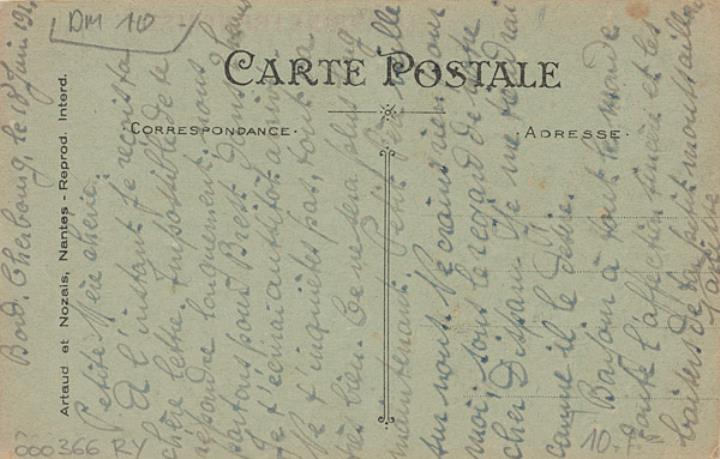 DM 10
CARTE POSTALE
CORRESPONDANCE
ADRESSE
Artaud et Nozais, Nantes - Reprod. Interd.
Bord. Cherbourg, le 18 Juin 19
Petite Mère chérie.
A l'instant je reçois ta
chère lettre. Impossible de te
répondre longuement. nous
partons pour Brest dans
Je t'écrirai aussitôt arrivé.
Ne t'inquiètes pas, tout va
très bien. Ce ne sera plus long
maintenant. Petit Père veille
sur nous. Ne crains rien pour
moi, sous le regard de notre
cher Disparu. Je me tiendrai
comme il le désire.
Bonjour à tout le monde
toute l'affection sincère et les
baisers de ton petit moussaillon
000366 RY
10.-F